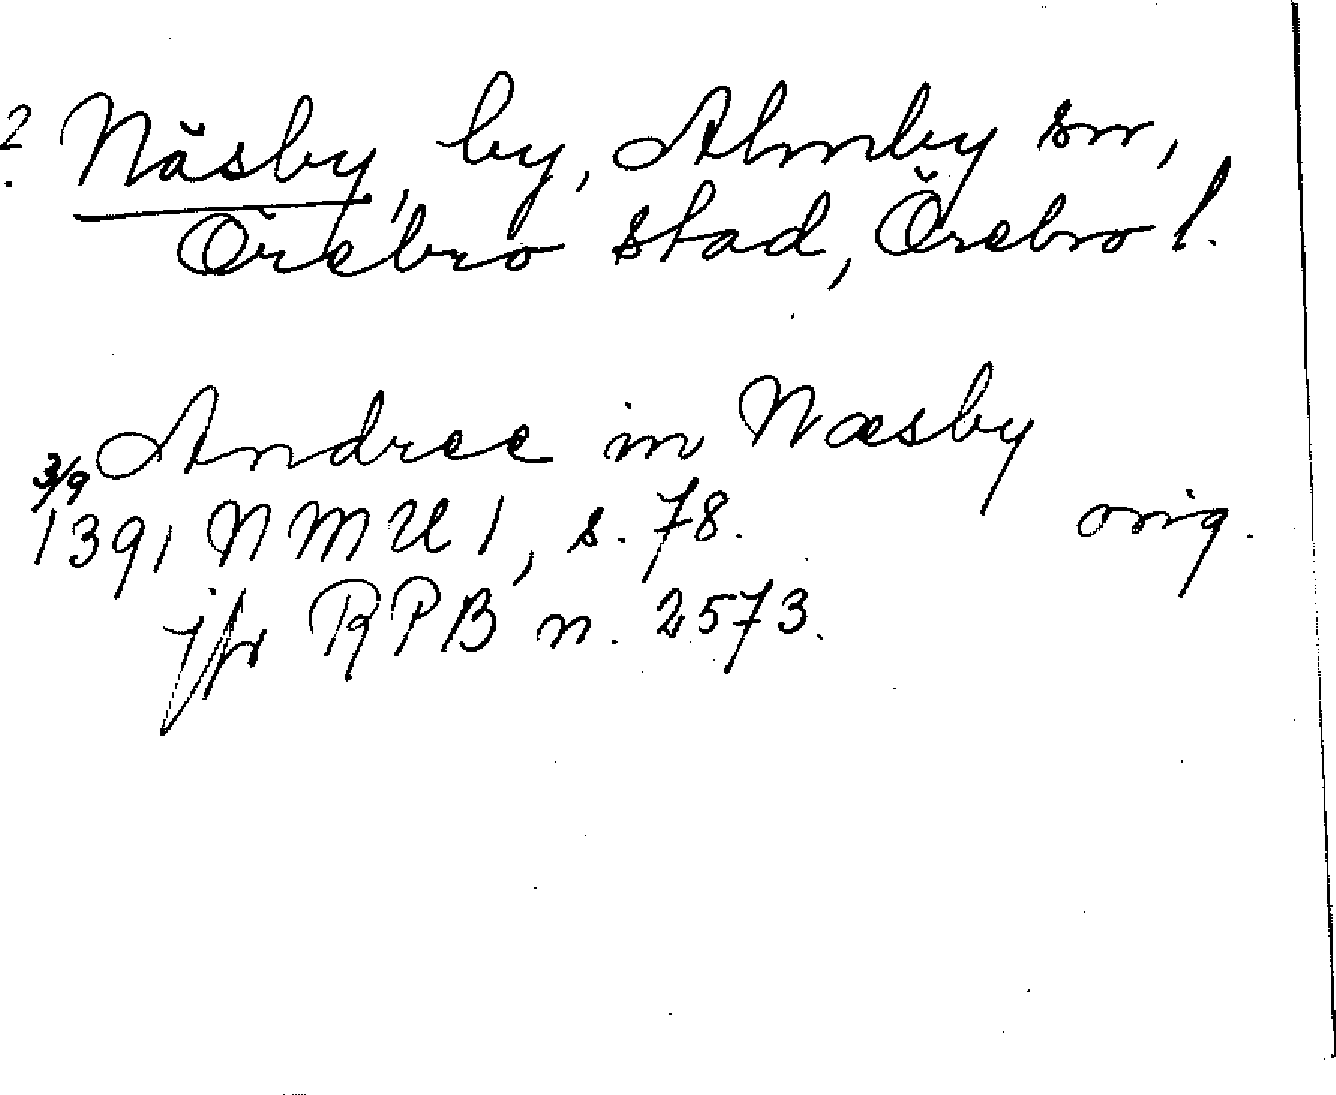 ? Näsby, by, Almby sn,
Örebro stad, Örebro l.
Andree in Næsby
3/9
1391 NMU 1, s. 78. orig.
jfr RPB n. 2573.